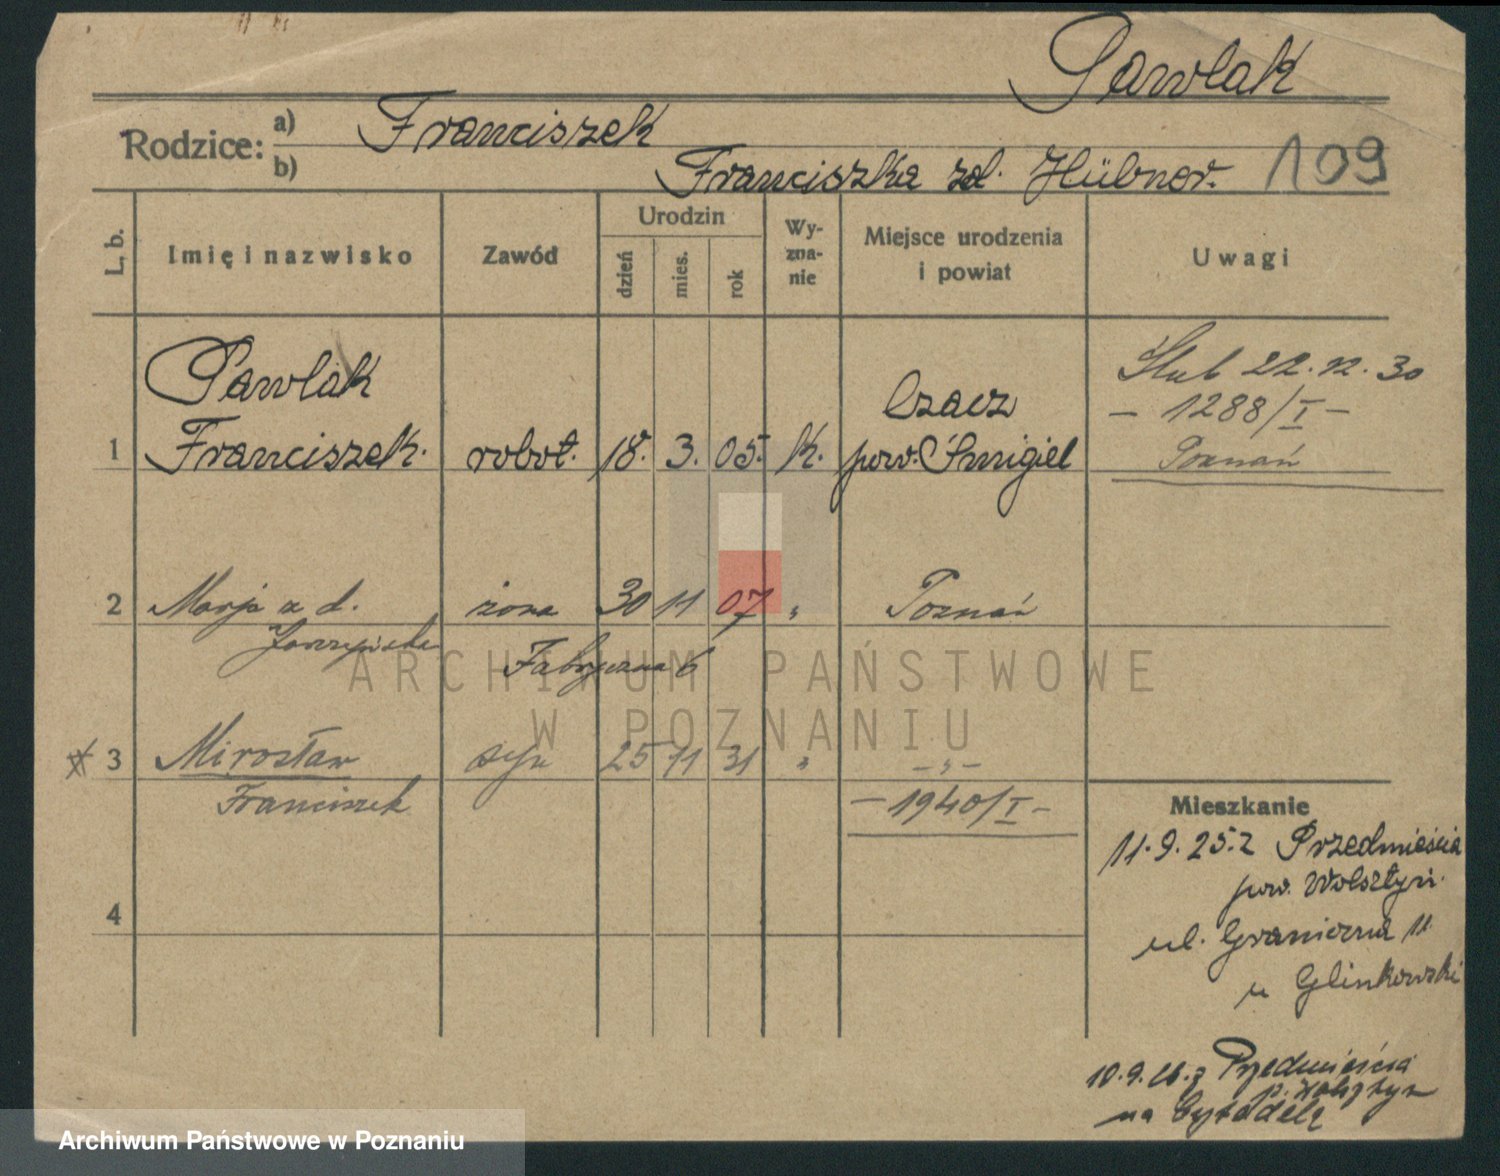 Pawlak
Rodzice: a) Franciszek
b) Franciszka zd. Hübner. 109
L. b. Imię i nazwisko Zawód Urodzin dzień mies. rok Wy-zna-nie Miejsce urodzenia i powiat Uwagi
Pawlak Czacz Ślub 22.12.30
- 1288/I -
1 Franciszek. robot. 18. 3. 05. k. pow. Śmigiel Poznań
2 Marja z d. żona 30 11 07 " Poznań
Fabryczna 6
ARCHIWUM PAŃSTWOWE
W POZNANIU
3 Mirosław syn 25 11 31 " - " -
Franciszek - 1940/I -
Mieszkanie
11.9.25. z Przedmieścia
pow. Wolsztyn.
4
ul. Graniczna 11
u Glinkowski
10.9.26. z Przedmieścia
p. Wolsztyn
na Cytadelę
Archiwum Państwowe w Poznaniu